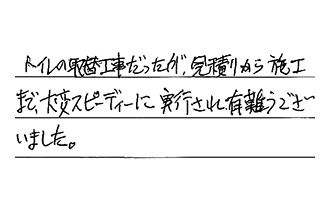 トイレの取替工事だったが、見積りから施工
まで、大変スピーディーに実行され有難うござ
いました。